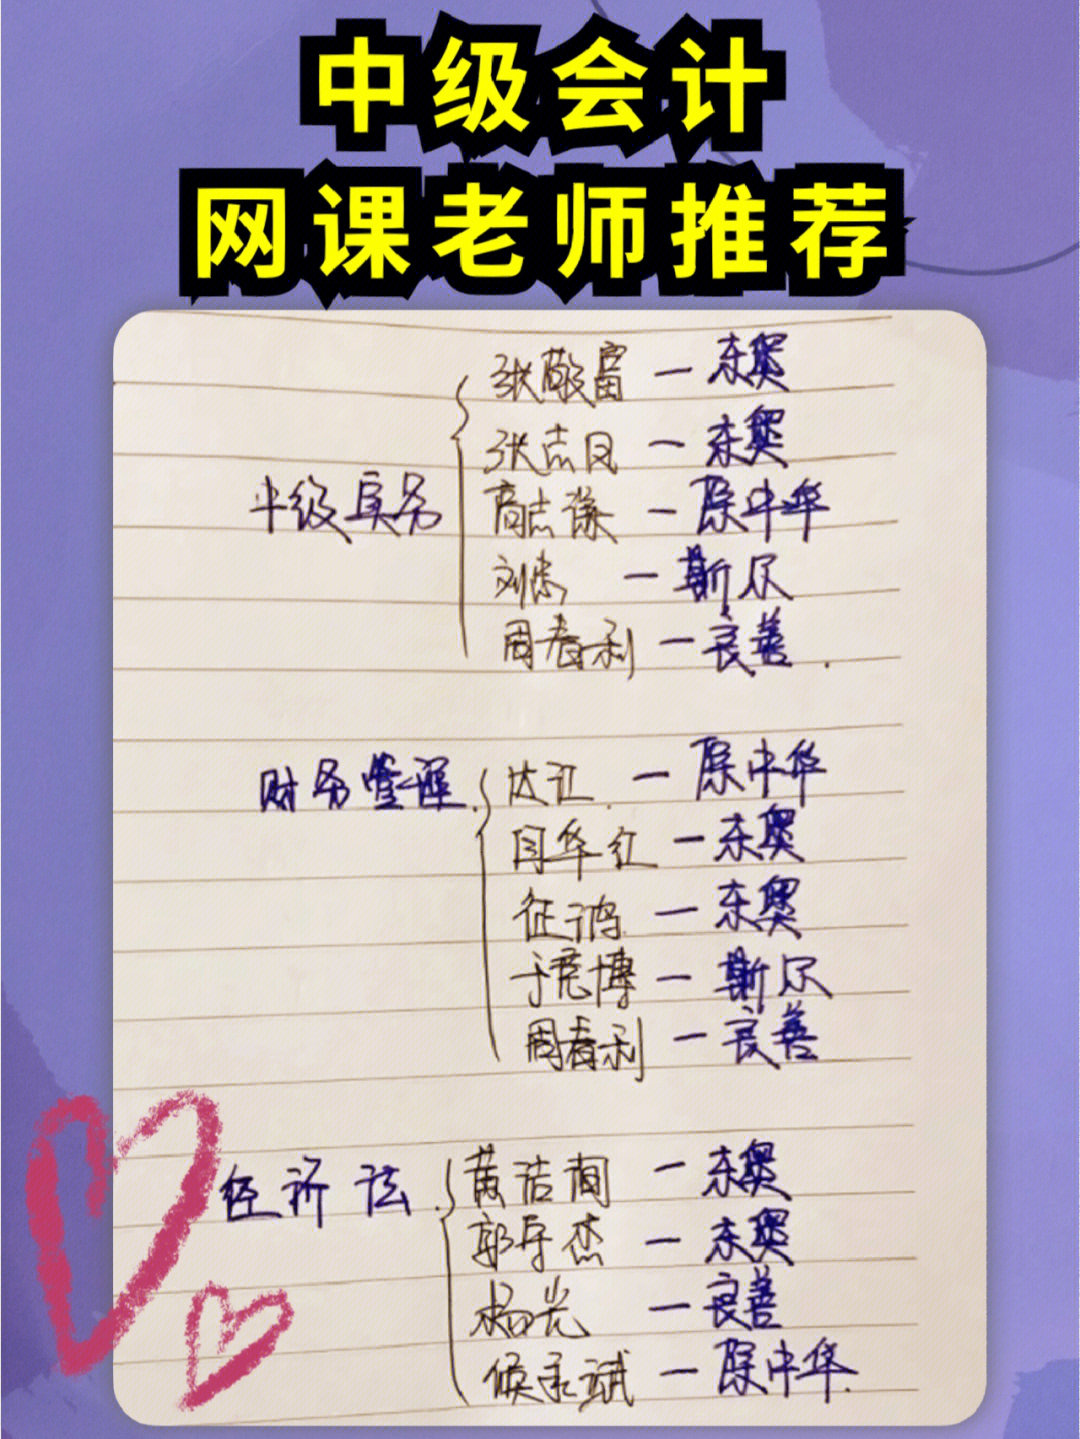 中级会计
网课老师推荐
张敬富 — 东奥
张志凤 — 东奥
中级实务 高志谦 — 除中华
刘忠 — 斯尔
周春利 — 良善
财务管理 达江 — 除中华
闫华红 — 东奥
征鸿 — 东奥
于亮博 — 斯尔
周春利 — 良善
经济法 黄洁洵 — 东奥
郭守杰 — 东奥
杨光 — 良善
侯永斌 — 除中华